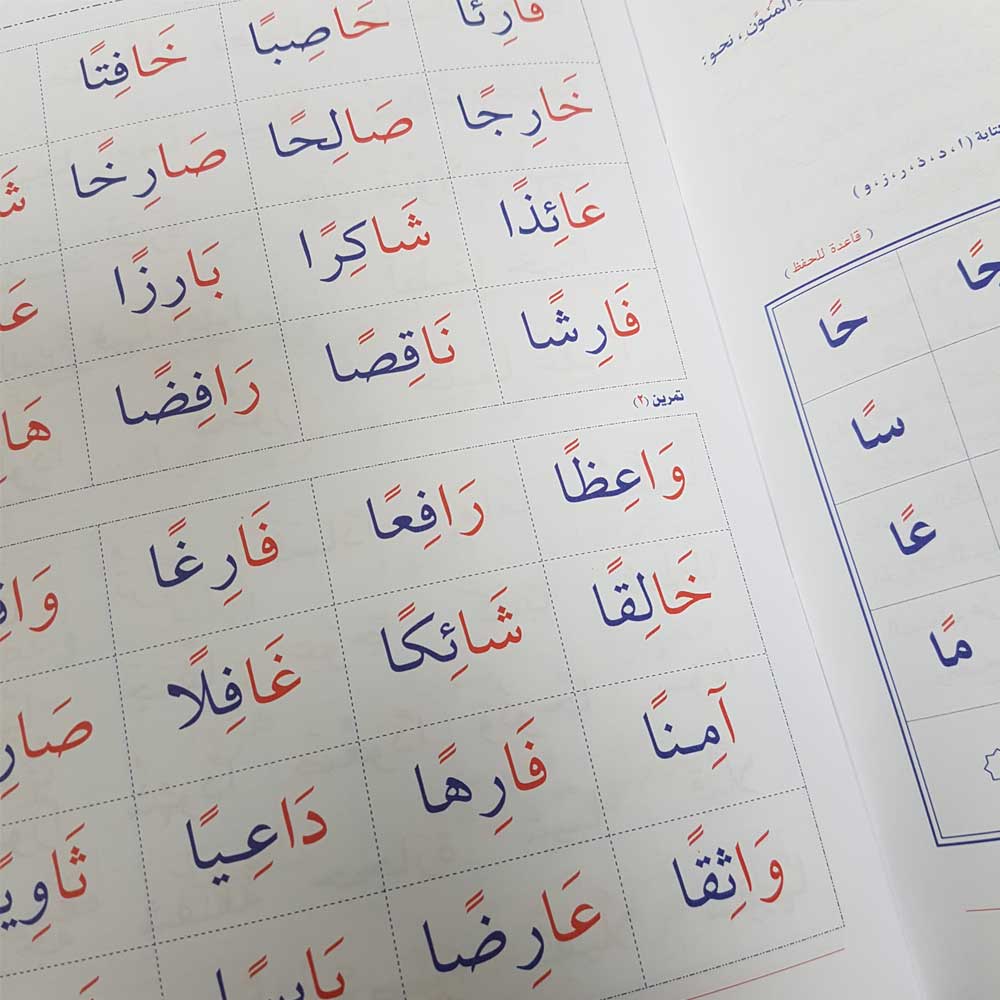 المنون، نحو:
(ا ، د ، ذ ، ر ، ز ، و)
( قاعدة للحفظ )
حًا
سًا
عًا
مًا
حَاصِبًا خَافِتًا
خَارِجًا صَالِحًا صَارِخًا
عَائِذًا شَاكِرًا بَارِزًا
فَارِشًا نَاقِصًا رَافِضًا
تمرين (٢)
وَاعِظًا رَافِعًا فَارِغًا
خَالِقًا شَائِكًا غَافِلًا
آمِنًا فَارِهًا دَاعِيًا
وَاثِقًا عَارِضًا